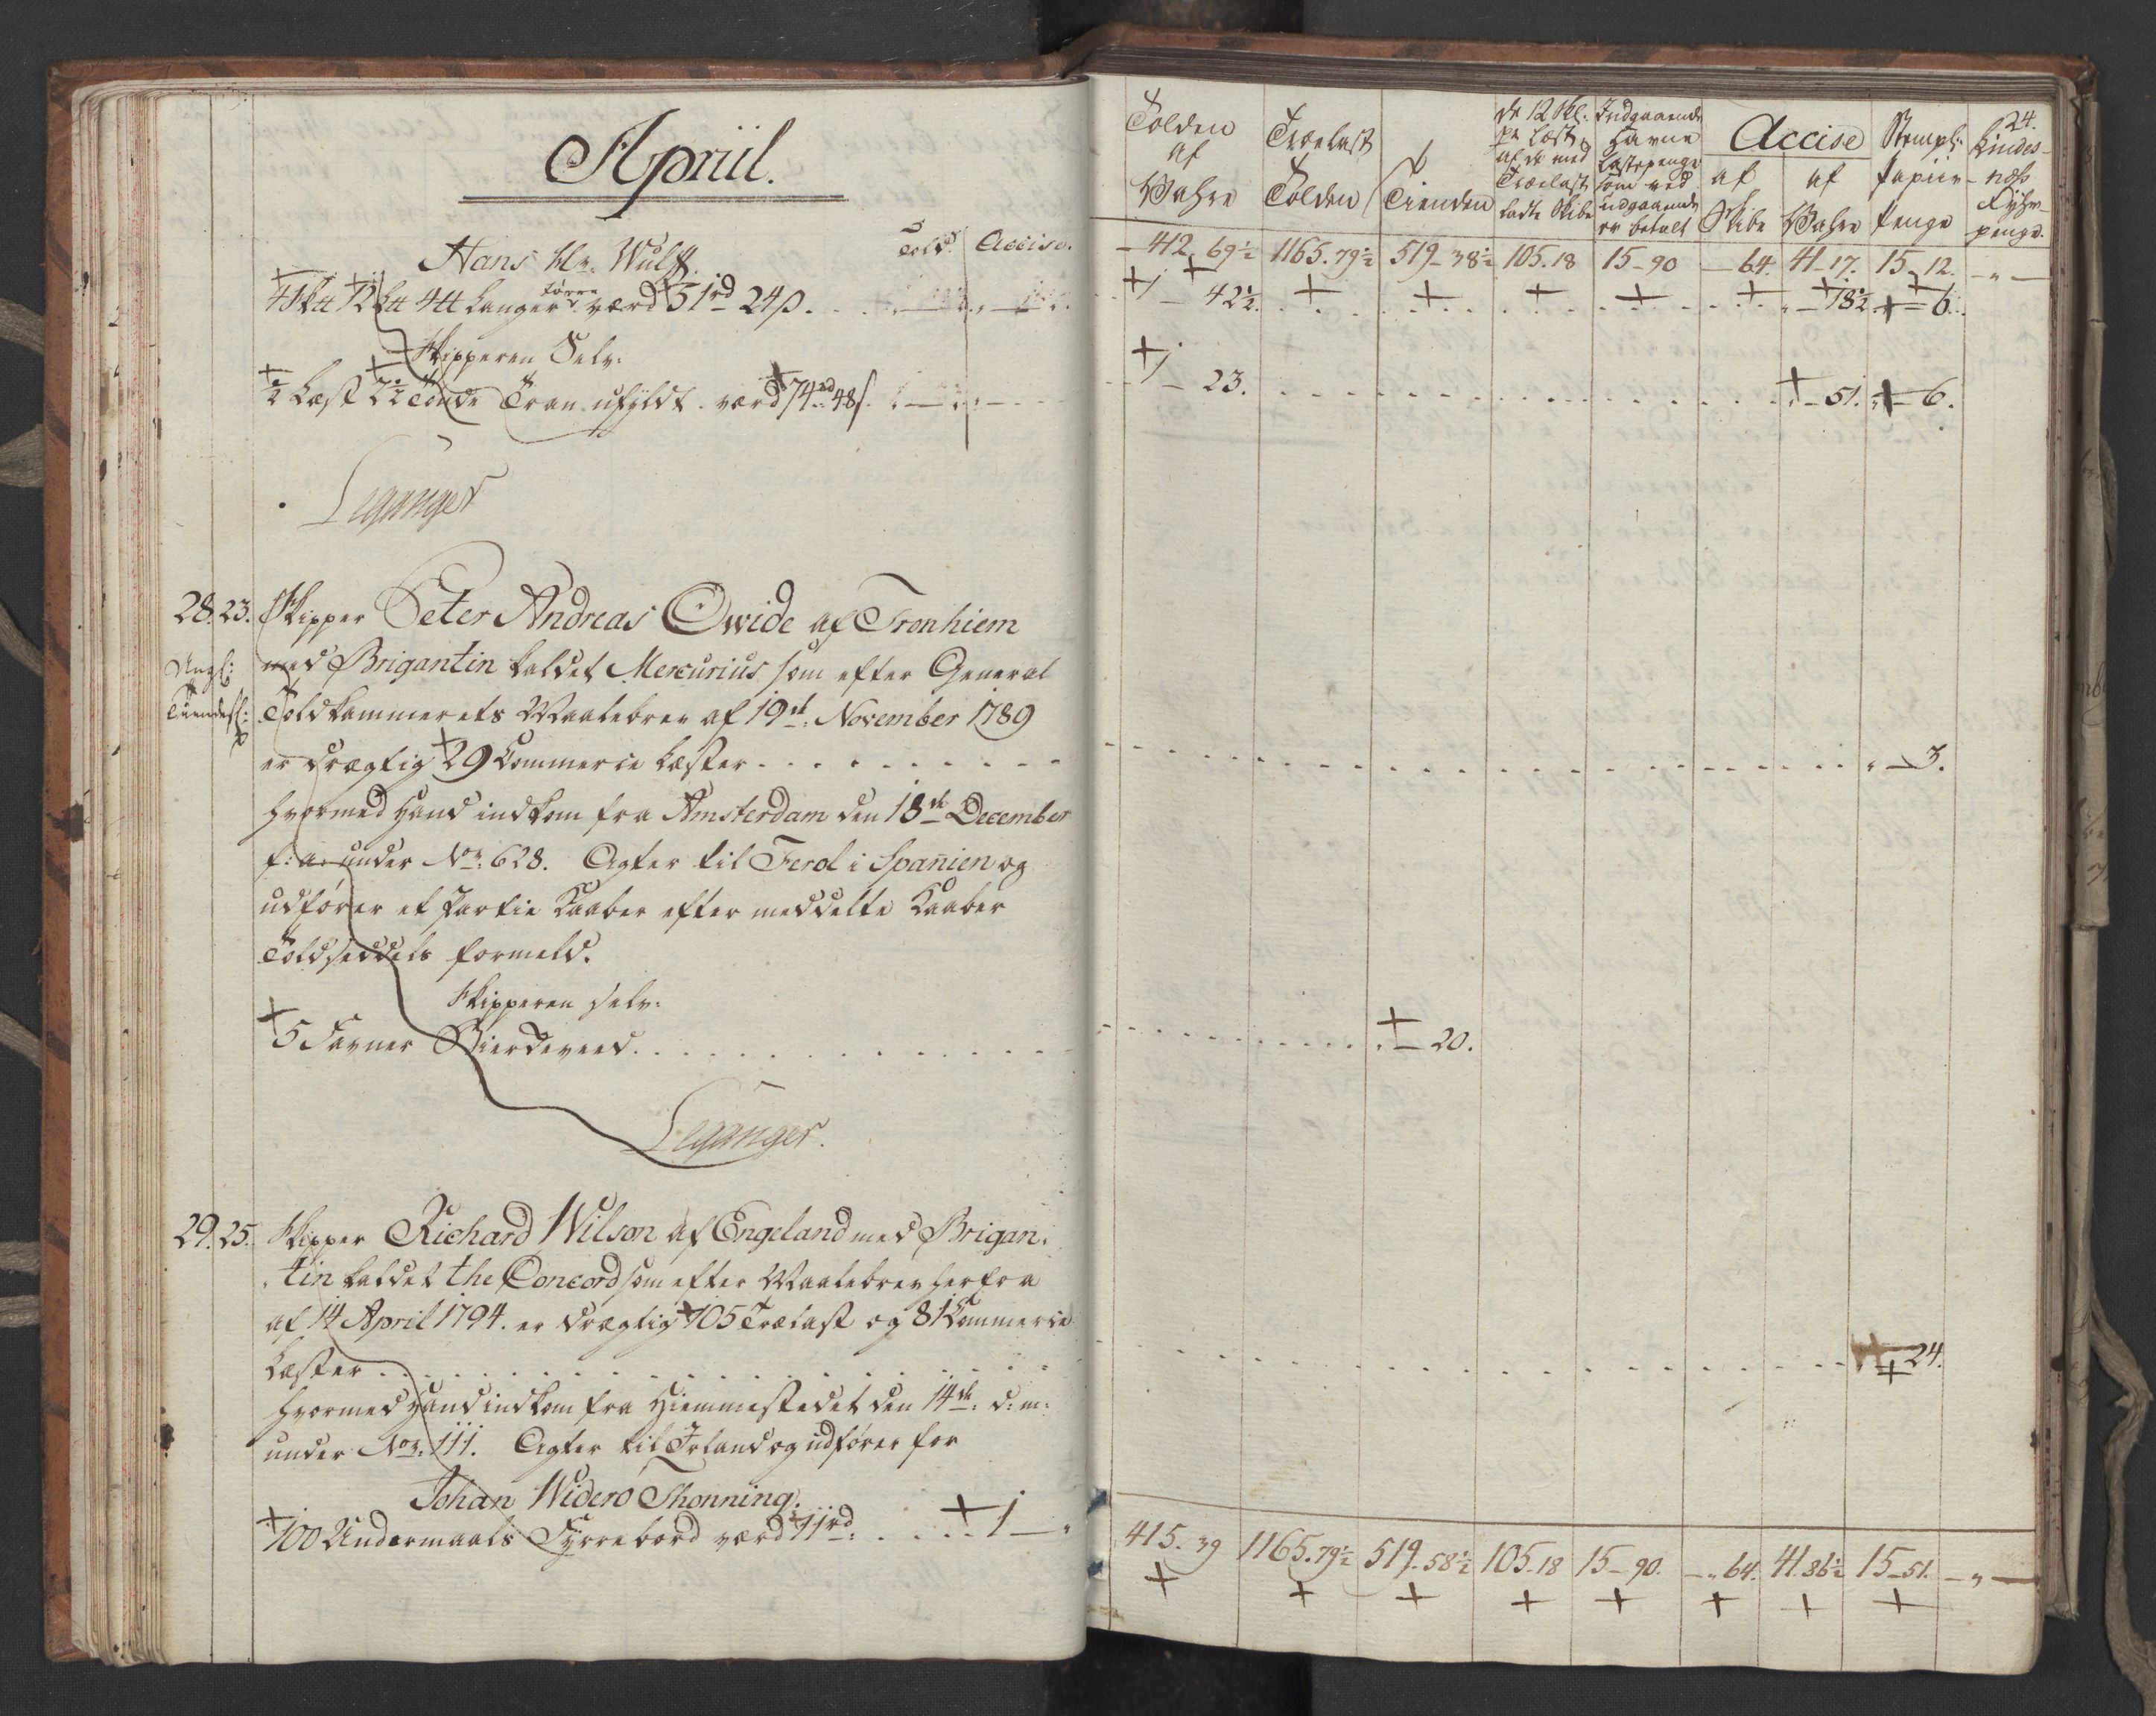 Apriil.
Told. Accise.
Hans Hr. Wulff.
tørre
værd 51rd 24ß.
Skipperen Selv.
½ Læst 2½ Tønde Tran ufyldt. værd 74rd 48ß.
Leganger
28. 23. Skipper Peter Andreas Owide af Tronhiem
med Brigantin kaldet Mercurius som efter General
Toldkammerets Maalebrev af 19de November 1789
er drægtig 29 Commercie Læster
hvormed Hand indkom fra Amsterdam den 18de December
f: a. under No. 628. Agter til Ferol i Spanien og
udfører et Partie Kaaber efter meddelte Kaaber
Toldseddels formeld.
Skipperen selv.
5 Favner Bierkeveed.
Leganger.
29. 25. Skipper Richard Wilson af Engeland med Brigan-
tin kaldet the Concord som efter Maalebrev herfra
af 14 April 1794. er drægtig 105 Trælast og 81 Commercie
Læster
hvormed Hand indkom fra Hiemmestedet den 14de d: m:
under No. 111. Agter til Irland og udfører for
Johan Widerø Thonning.
100 Undermaals Fyrrebord værd 11rd. 1 —
24.
Tolden af Vahre
Trælast Tolden
Tienden
de 12 Skl. pr Læst af de med Trælast ladte Skibe
Indgaaende Havne Lastepenge som ved udgaaende er betalt
Accise
af Skibe
af Vahre
Stempl. Papiir Penge
Lindes-næss Fyhr-penge.
412. 69½ 1165. 79½ 519. 38½ 105. 18 15 - 90 - 64. 41 - 17. 15 - 12. - " -
1 - 42½. " - 18½ " - 6.
1 - 23. " - 51. " - 6.
" - 3.
" - 20.
24.
415. 39 1165. 79½ 519. 58½ 105. 18 15 - 90. - " 64. 41. 86½ 15 - 51. - " -